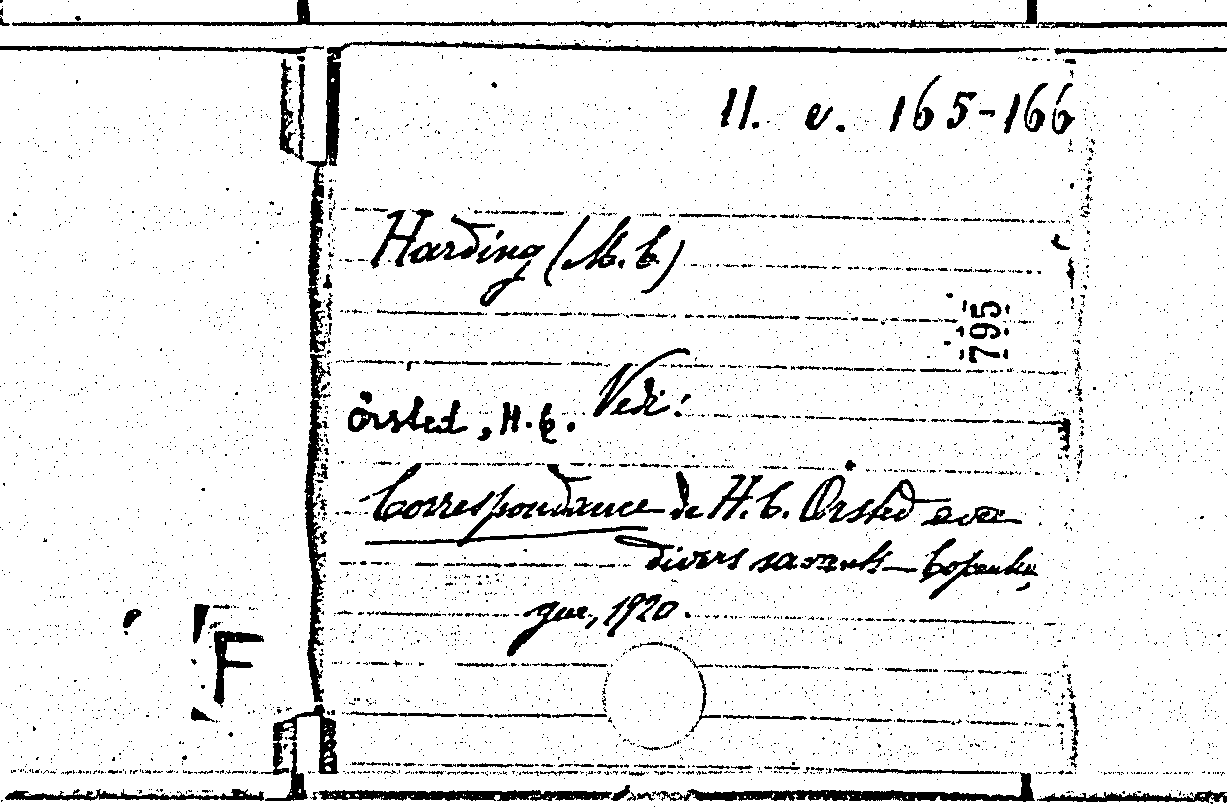 11. e. 165-166
Harding (M. C.)
795
Vedi:
Örsted, H. C.
Correspondance de H. C. Örsted avec
divers savants - Copenha,
gue, 1920.
F